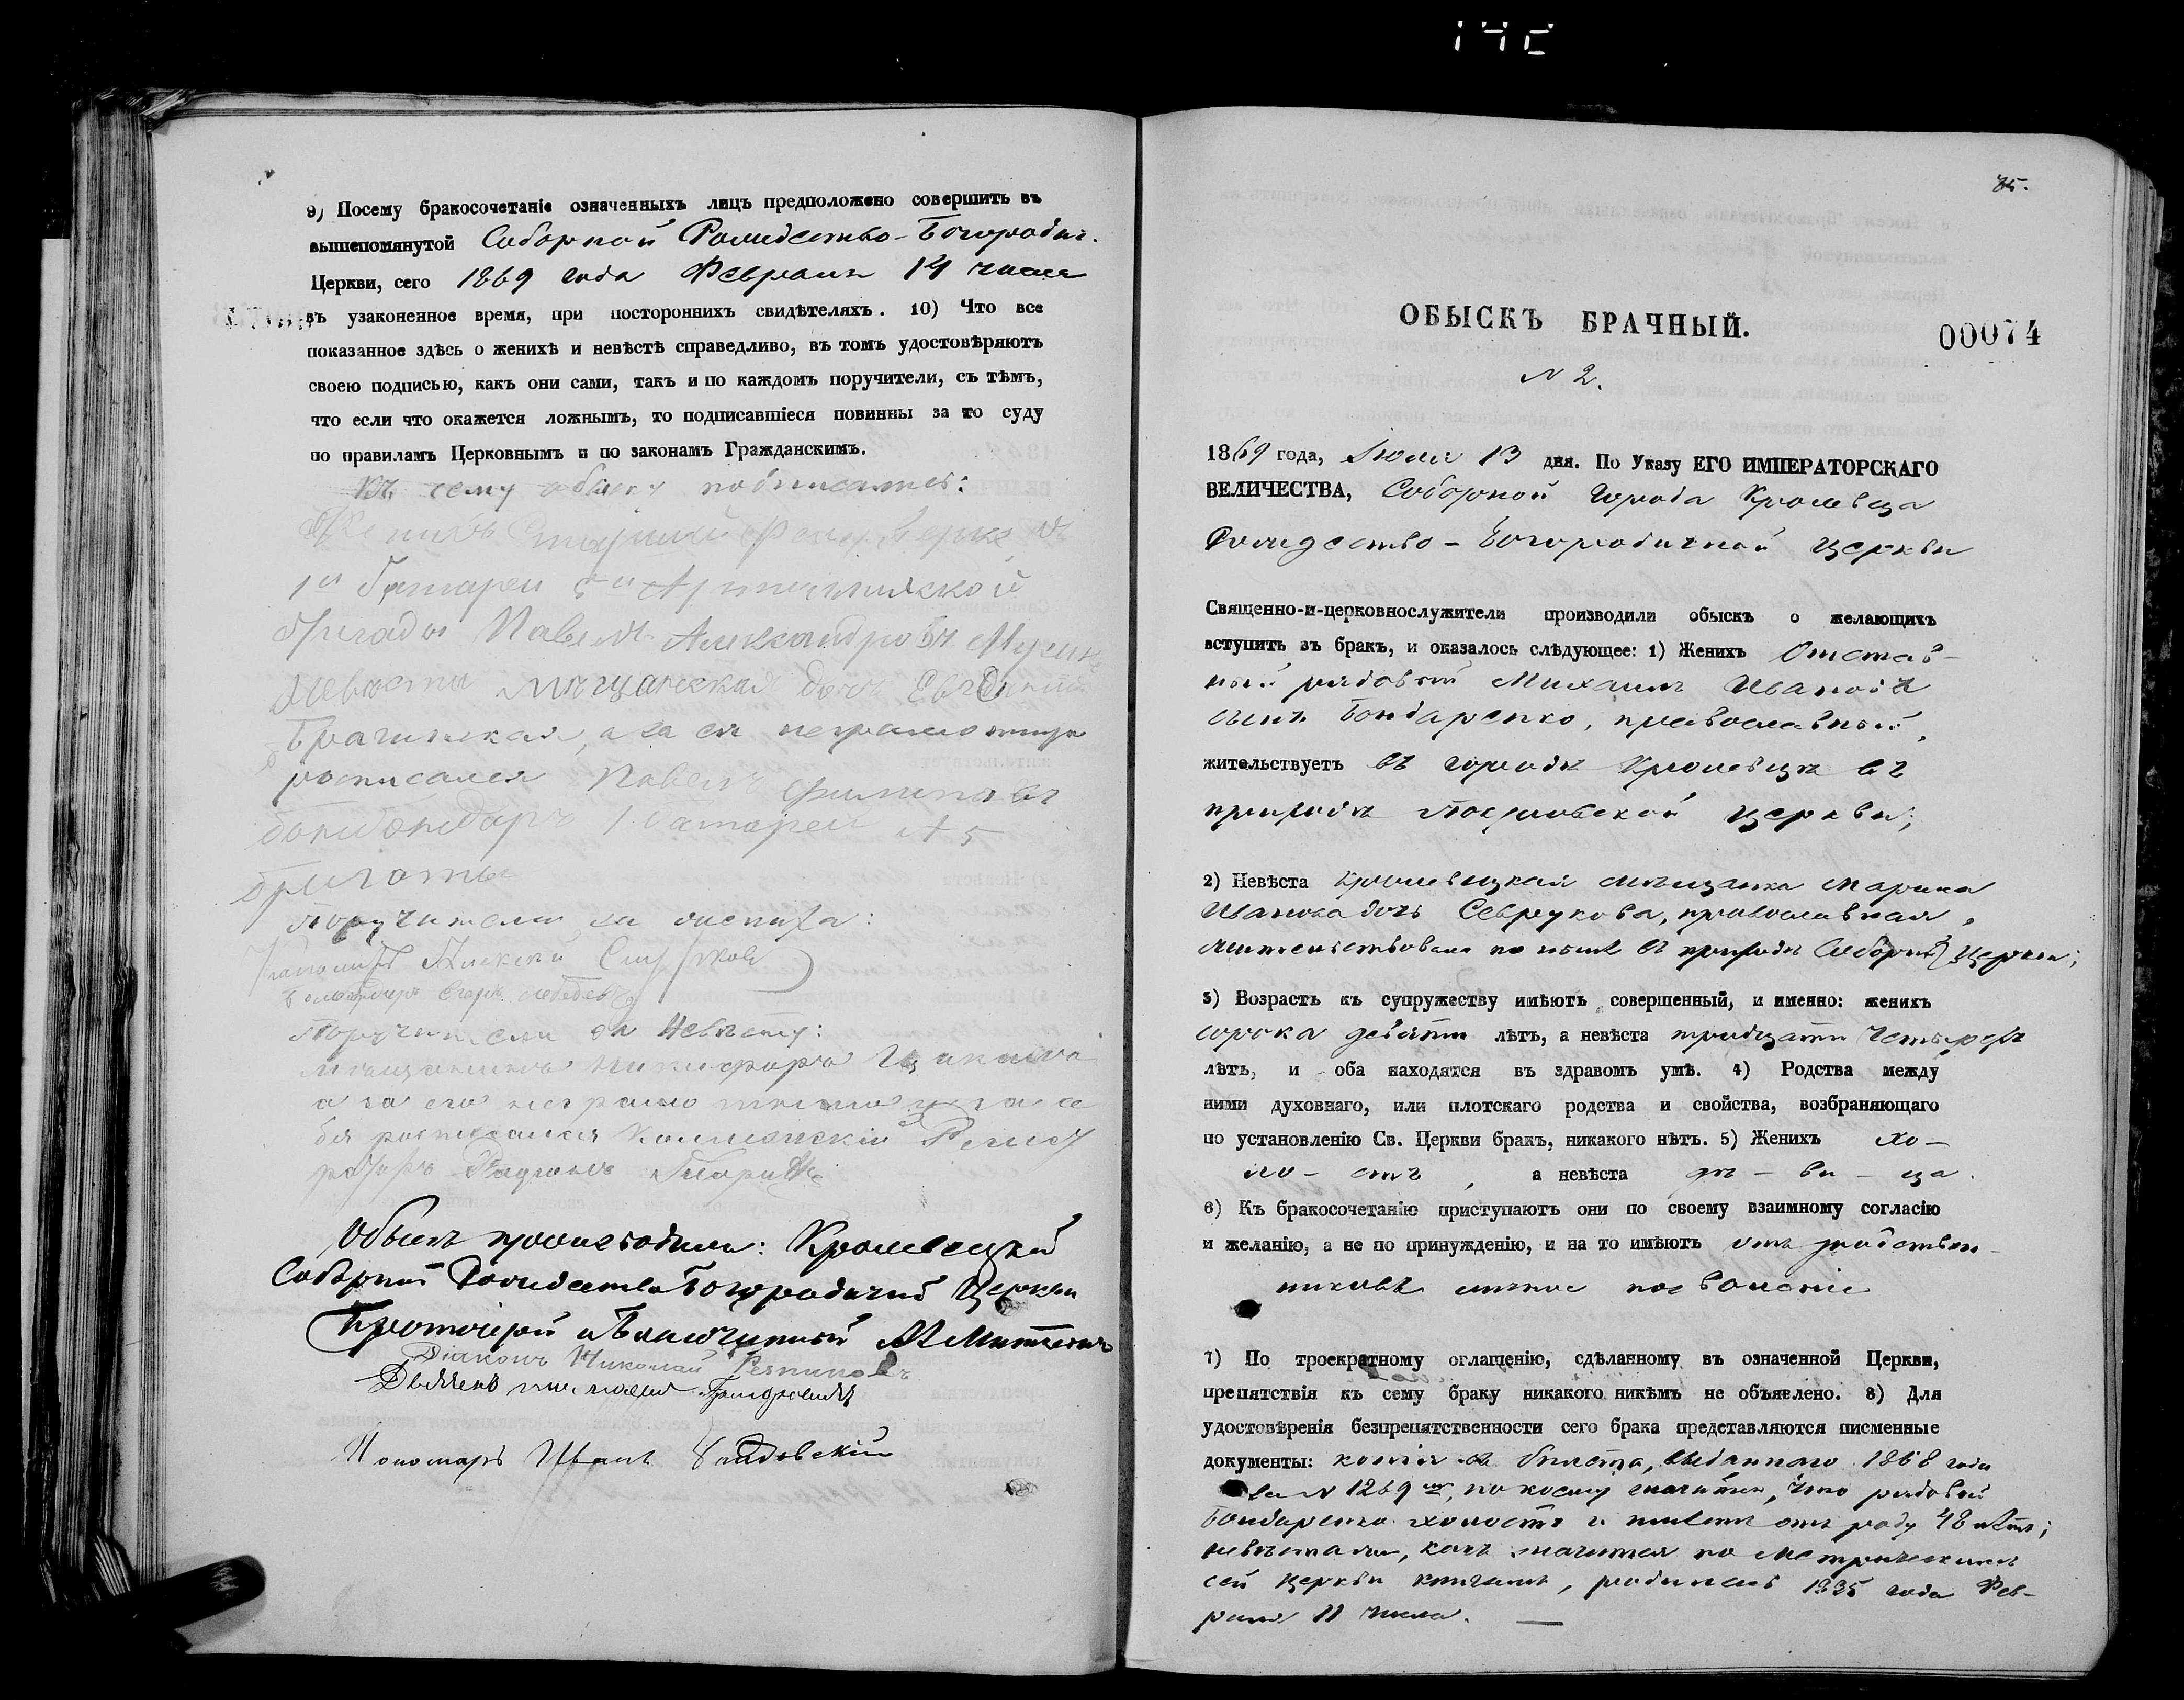 9) Посему бракосочетаніе означенныхъ лицъ предположено совершить въ
вышепомянутой Соборной Рождество-Богородич.
Церкви, сего 1869 года Февраля 14 числа
въ узаконенное время, при постороннихъ свидѣтеляхъ. 10) Что все
показанное здѣсь о женихѣ и невѣстѣ справедливо, въ томъ удостовѣряютъ
своею подписью, какъ они сами, такъ и по каждомъ поручители, съ тѣмъ,
что если что окажется ложнымъ, то подписавшіеся повинны за то суду
по правиламъ Церковнымъ и по законамъ Гражданскимъ.
Къ сему обыску подписались:
Женихъ
1й батареи 5й Артиллийской
бригады Павелъ Александровъ
Невѣста мѣщанская дочь Евдокія
а за ея неграмотную
росписался Павелъ Филиповъ
бомбондиръ 1 батареи 5
бригаты
Поручители по жениха:
Алексей
Поручители по Невѣсту:
мѣщанинъ Никифоръ
а за его неграмотного
росписался
Обыскъ производили: Кролевецкой
Соборной Рождество Богородичной Церкви
Протоіерей и Благочинный
Діаконъ Николай
Пономарь Иванъ
85.
ОБЫСКЪ БРАЧНЫЙ.
00074
N 2.
1869 года, Іюля 13 дня. По Указу ЕГО ИМПЕРАТОРСКАГО
ВЕЛИЧЕСТВА, Соборной города Кролевца
Рождество-Богородичной церкви
Священно-и-церковнослужители производили обыскъ о желающихъ
вступить въ бракъ, и оказалось слѣдующее: 1) Женихъ Отстав-
ный рядовый Михаилъ Ивановъ
сынъ Бондаренко, православный,
жительствуетъ въ городѣ Кролевцѣ въ
приходѣ Покровской церкви;
2) Невѣста Кролевецкая мѣщанка Марина
Иванова дочь Севрукова, православная,
жительствовала по нынѣ въ приходѣ Соборной Церкви;
3) Возрастъ къ супружеству имѣютъ совершенный, и именно: женихъ
сорока девяти лѣтъ, а невѣста тридцати четырехъ
лѣтъ, и оба находятся въ здравомъ умѣ. 4) Родства между
ними духовнаго, или плотскаго родства и свойства, возбраняющаго
по установленію Св. Церкви бракъ, никакого нѣтъ. 5) Женихъ хо-
ло-стъ, а невѣста дѣ-ви-ца.
6) Къ бракосочетанію приступаютъ они по своему взаимному согласію
и желанію, а не по принужденію, и на то имѣютъ отъ родствен-
никовъ позволеніе
7) По троекратному оглашенію, сдѣланному въ означенной Церкви,
препятствія къ сему браку никакого никѣмъ не объявлено. 8) Для
удостовѣренія безпрепятственности сего брака представляются писменные
документы: копія билета, выданнаго 1868 года
за N 1269, по коему значится, что рядовой
Бондаренко холостъ и имѣетъ отъ роду 48 лѣтъ;
невѣста же, какъ значится по метрическимъ
сей церкви книгамъ, родилась 1835 года Фев-
раля 11 числа.